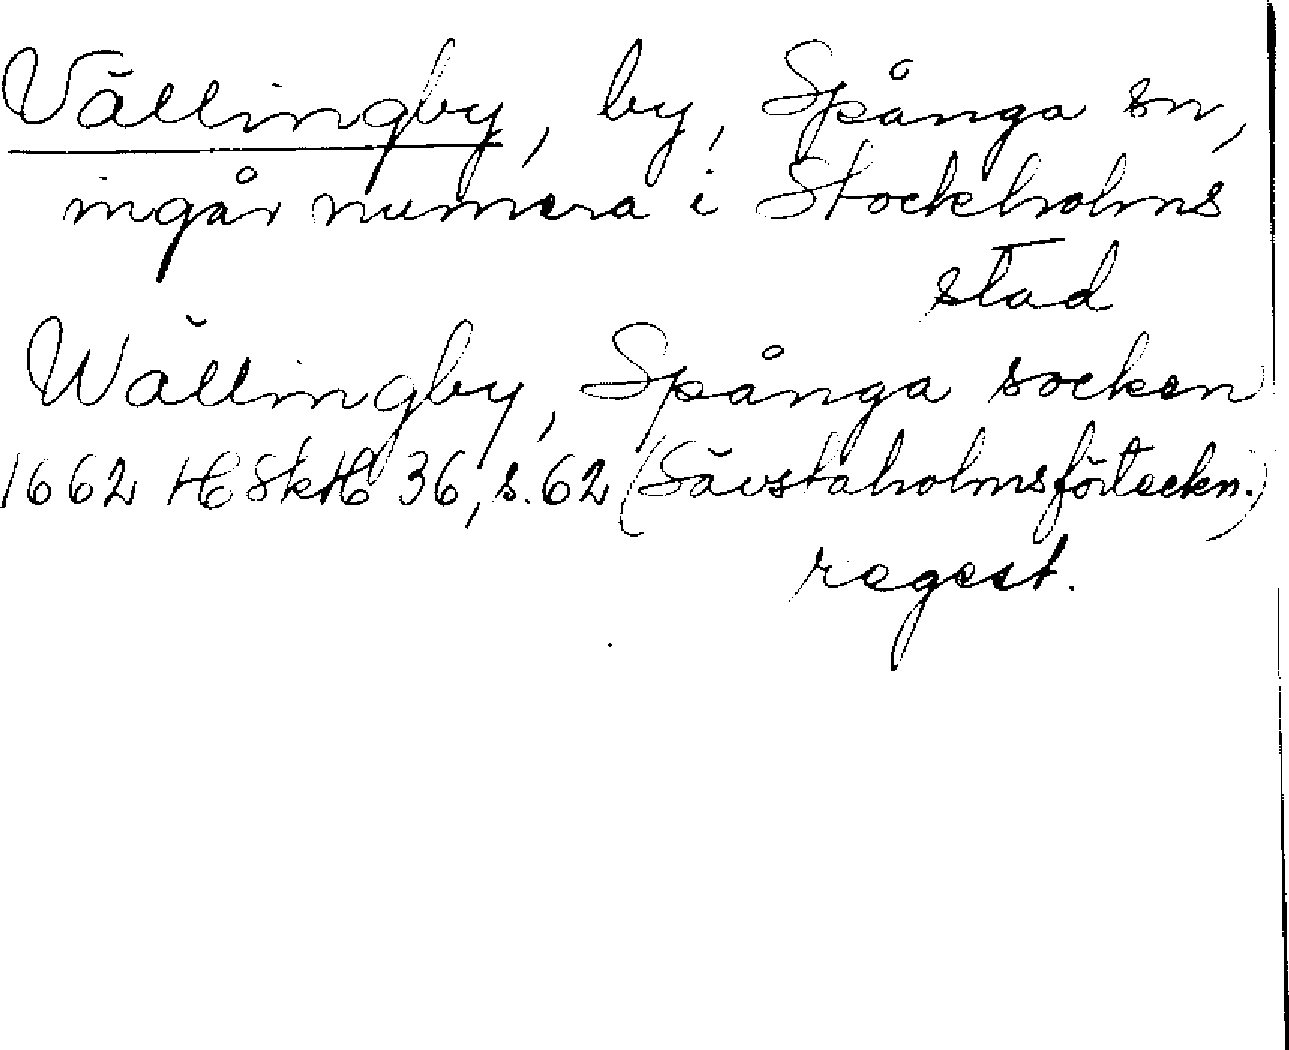 Vällingby, by, Spånga sn,
ingår numera i Stockholms
stad
Wällingby, Spånga socken
1662 HSkH 36, s. 62 (Sävstaholmsförteckn.)
regest.